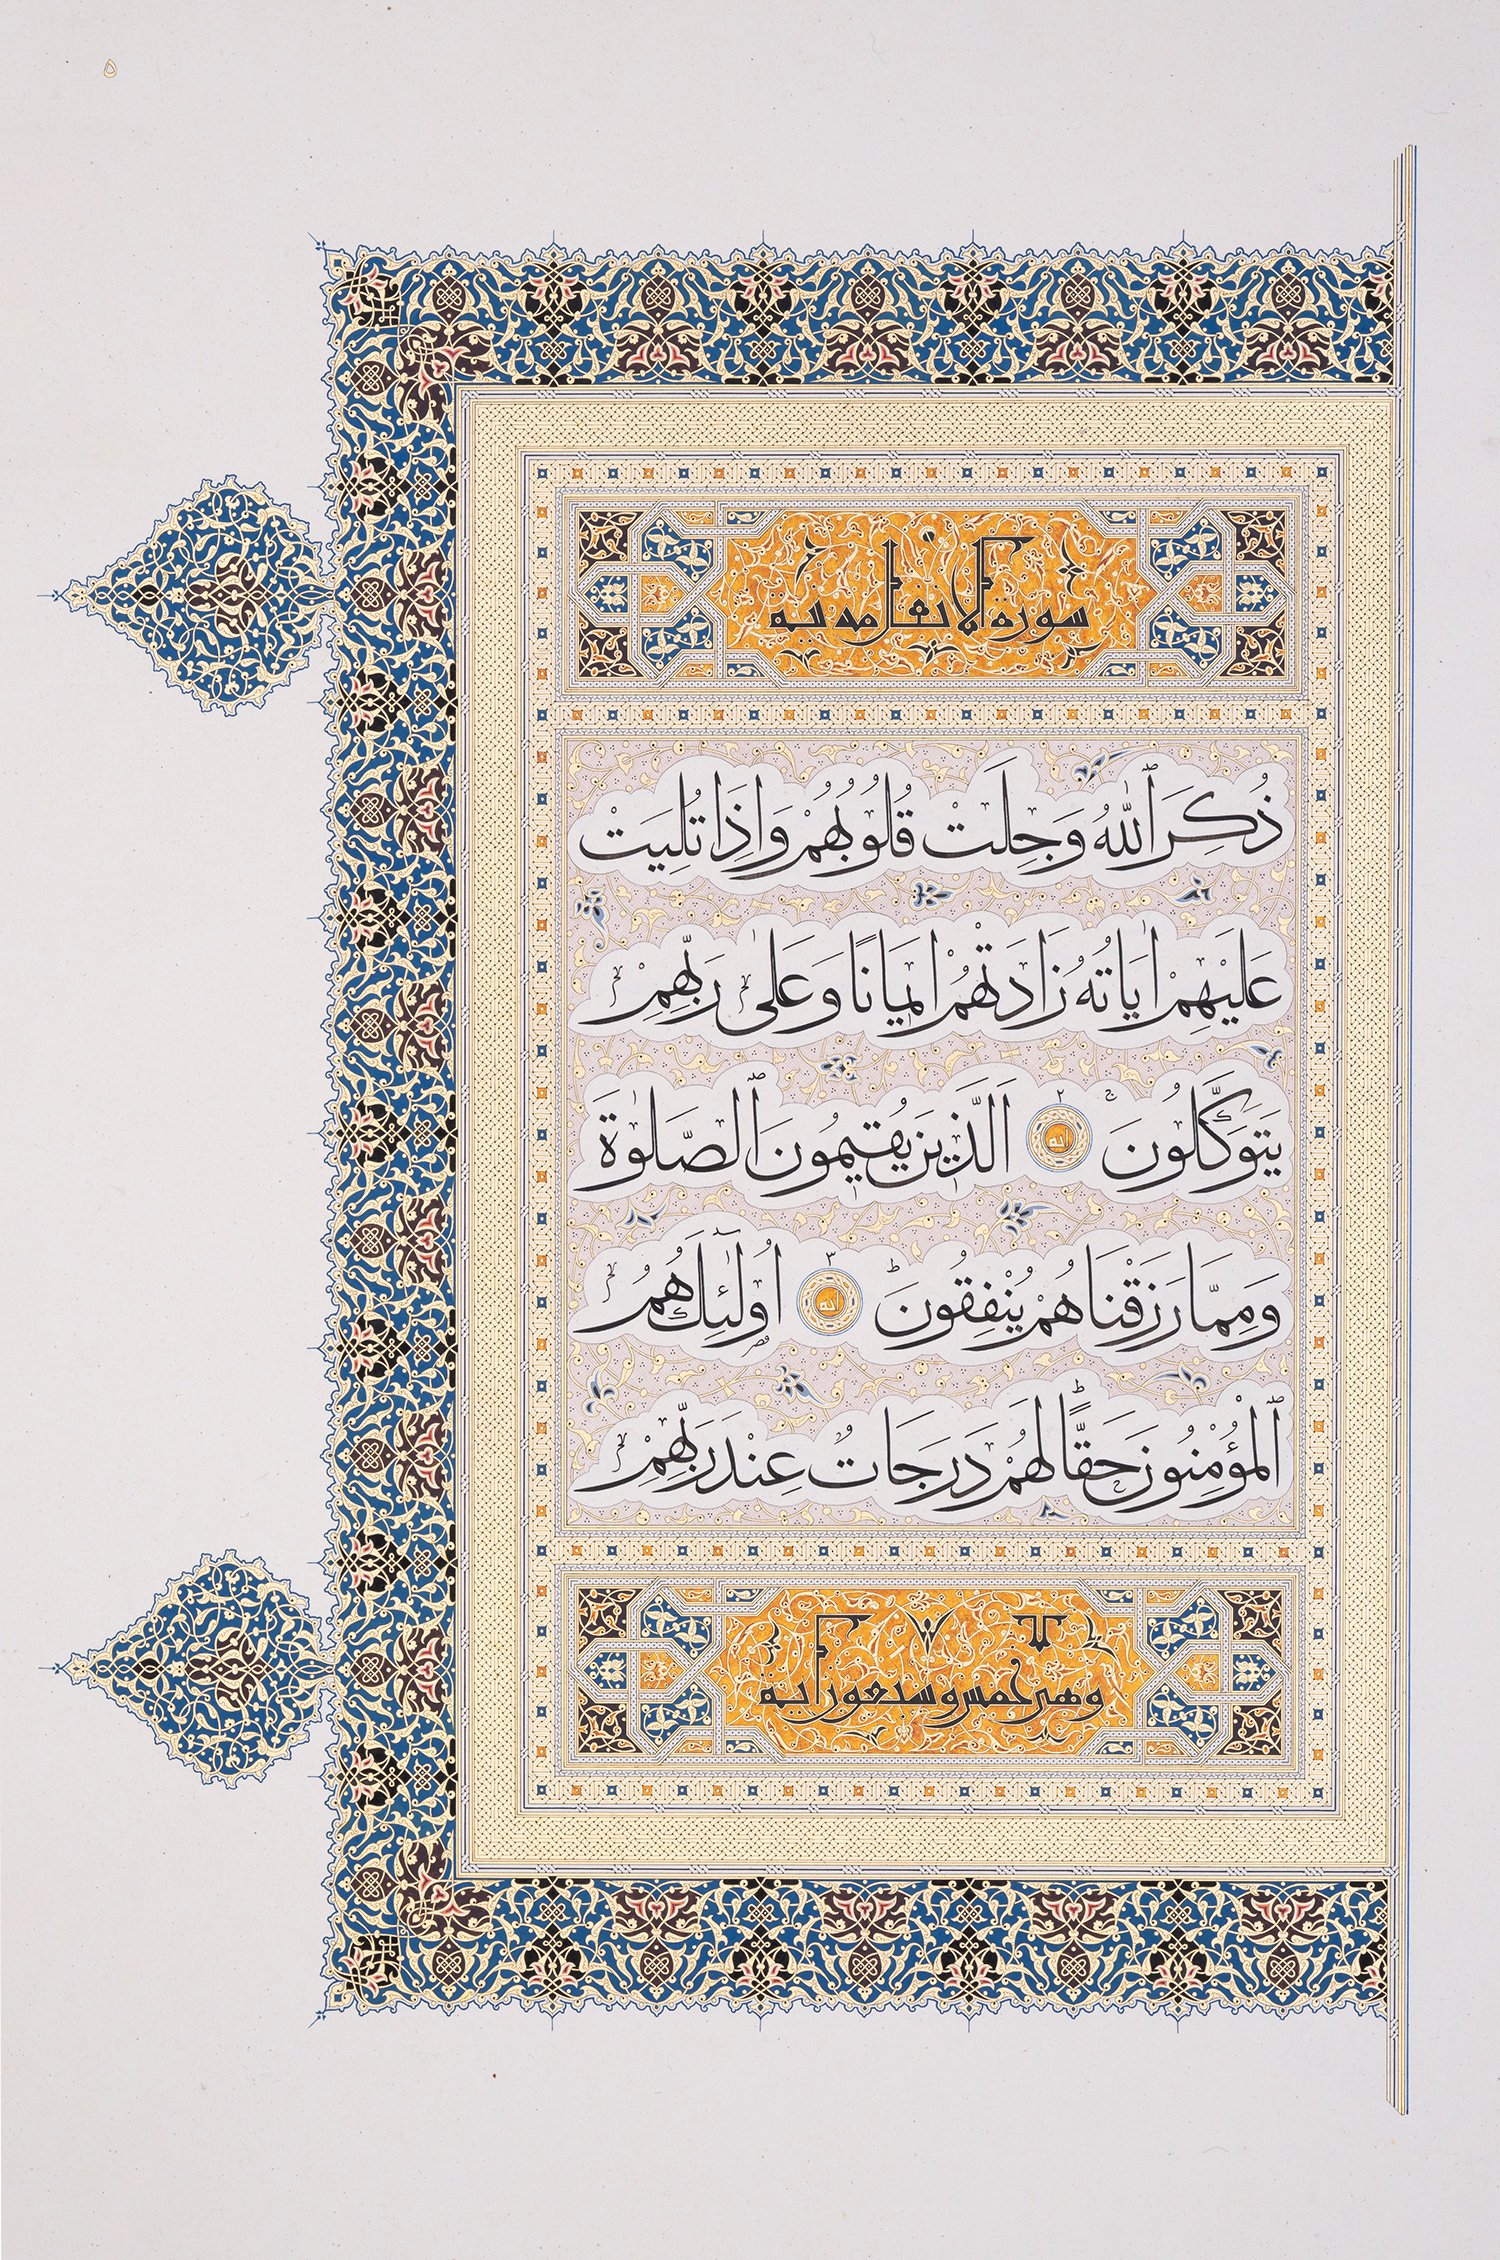 ٥
سورة الانفال مدنية
ذُكِرَ ٱللّٰهُ وَجِلَتْ قُلُوبُهُمْ وَاِذَا تُلِيَتْ
عَلَيْهِمْ اٰيَاتُهُ زَادَتْهُمْ اِيمَانًا وَعَلىٰ رَبِّهِمْ
يَتَوَكَّلُونَ ۚ ٢ اَلَّذِينَ يُقِيمُونَ ٱلصَّلٰوةَ
وَمِمَّا رَزَقْنَاهُمْ يُنْفِقُونَ ۜ ٣ اُولٰٓئِكَ هُمُ
ٱلْمُؤْمِنُونَ حَقًّا لَهُمْ دَرَجَاتٌ عِنْدَ رَبِّهِمْ
وهي خمس وسبعون اية